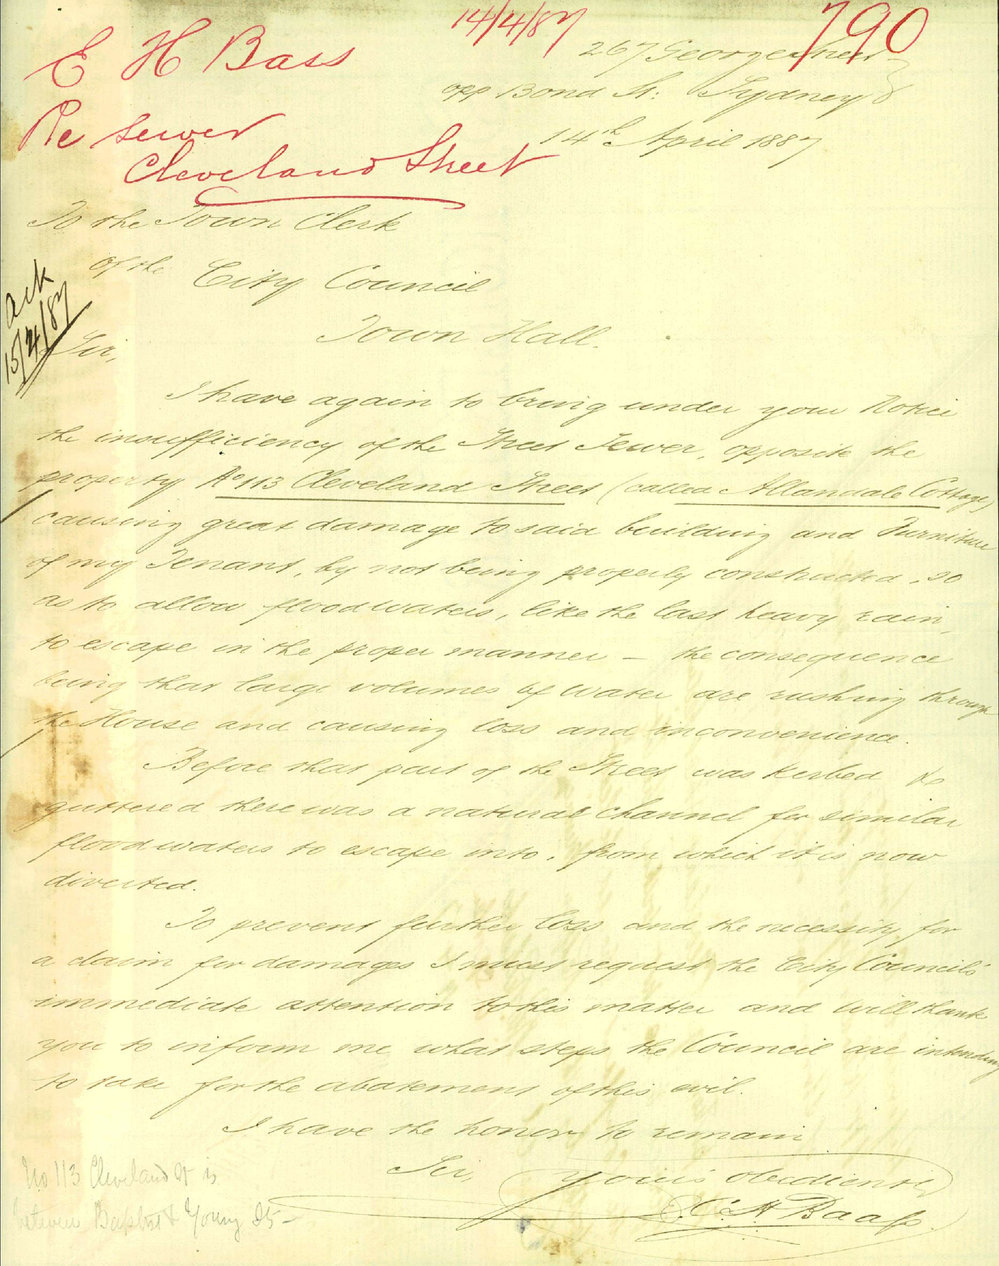 14/4/87
790
E H Bass
Re Sewer
Cleveland Street
267 George Street
opp Bond St: Sydney
14th April 1887
To the Town Clerk
of the City Council
Town Hall.
ack
15/4/87
Sir,
I have again to bring under your Notice
the insufficiency of the Street Sewer, opposite the
property No 113 Cleveland Street (called Allandale Cottage)
causing great damage to said building and Furniture
of my Tenant, by not being properly constructed, so
as to allow floodwaters, like the last heavy rain,
to escape in the proper manner – the consequence
being that large volumes of water are rushing through
the House and causing loss and inconvenience.
Before that part of the Street was Kerbed &
guttered there was a natural channel for similar
floodwaters to escape into, from which it is now
diverted.
To prevent further loss and the necessity for
a claim for damages I must request the City Council's
immediate attention to this matter and will thank
you to inform me what steps the Council are intending
to take for the abatement of this evil.
I have the honor to remain
Sir, yours obediently
E. H Baass
No 113 Cleveland St is
between Baptist & Young Sts –